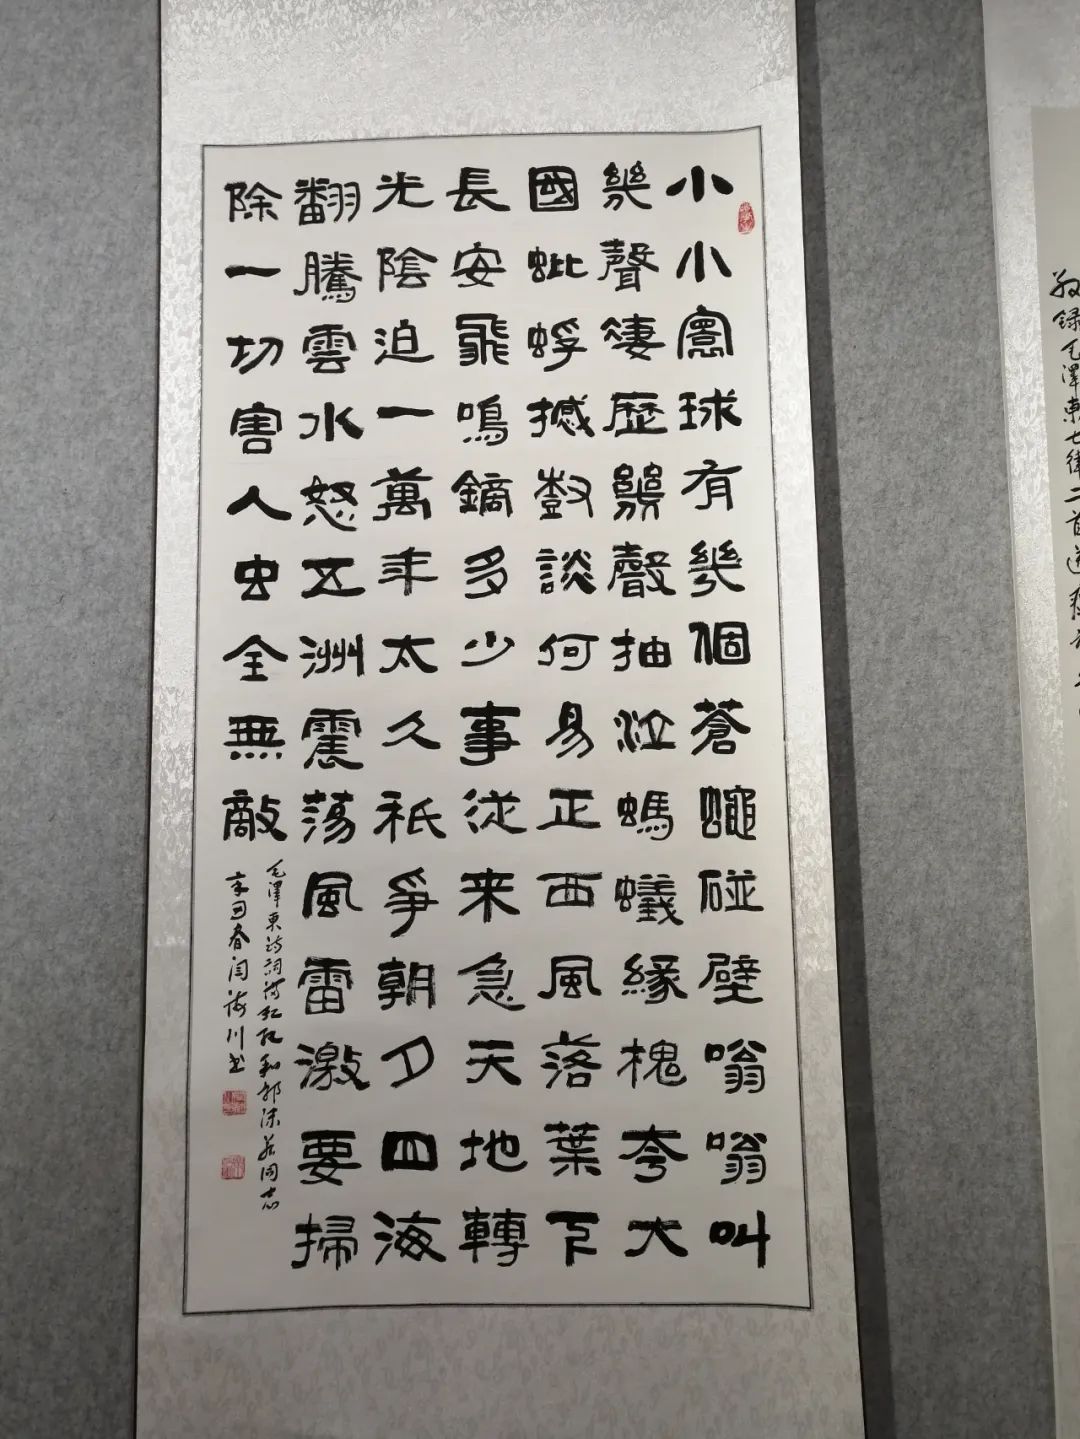 小小寰球有幾個蒼蠅碰壁嗡嗡叫
幾聲凄歷幾聲抽泣螞蟻緣槐夸大
國蚍蜉撼樹談何易正西風落葉下
長安飛鳴鏑多少事従来急天地轉
光陰迫一萬年太久祇爭朝夕四海
翻騰雲水怒五洲震蕩風雷激要掃
除一切害人虫全無敵
毛澤東诗詞满江红和郭沫若同志
辛丑春闫海川书
录毛澤東七律二首送瘟神